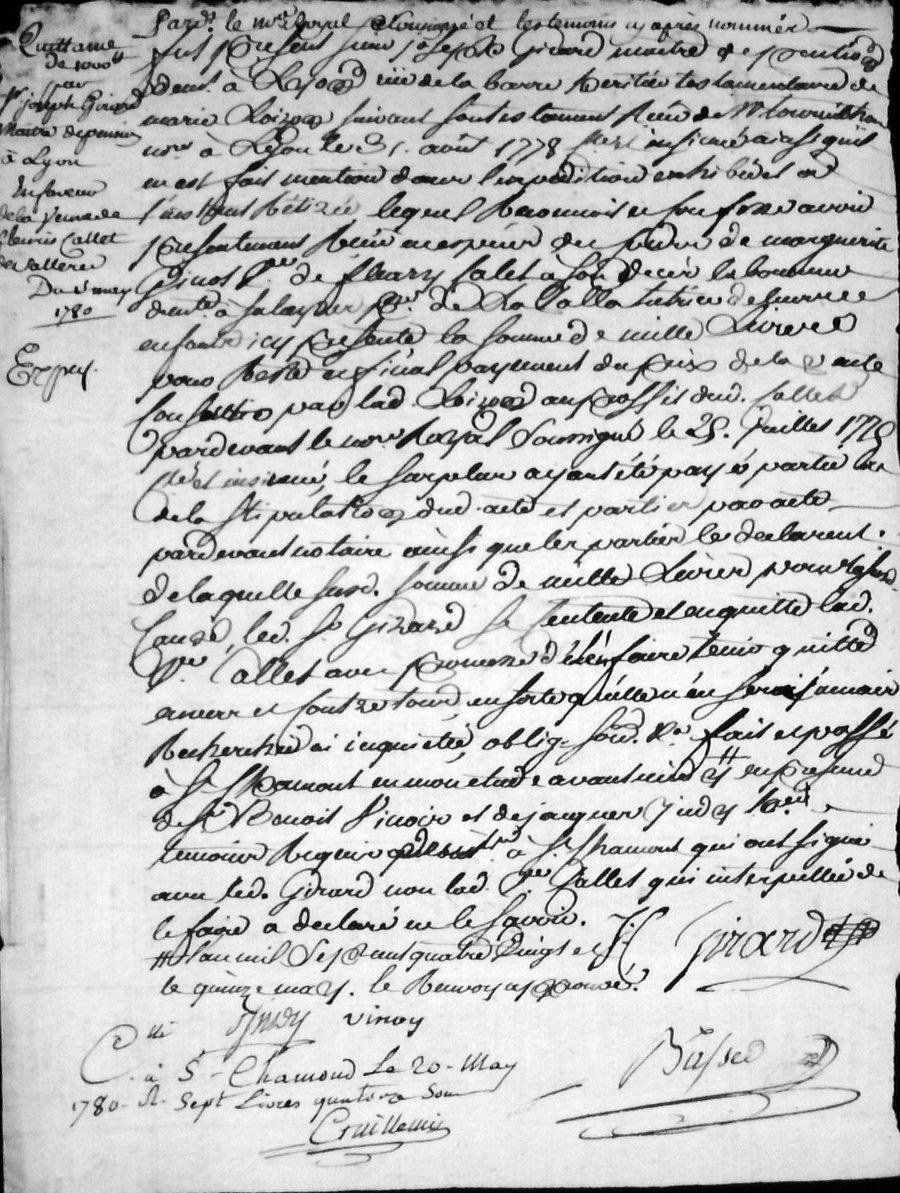 Quittance
de 1000 #
par
Sr joseph Girard
Maitre de pension
à Lyon
En faveur
de la veuve de
fleuris Callet
de valleire
Du 15 may
1780
Expéd.
Pard. le nore Royal soussigné et les temoins cy après nommés
fut present sieur joseph Girard maitre de pention
demt. à Lyon rüe de la barre heritier testamentaire de
marie Loizon suivant son testament Reçu de Me
nore à Lyon le 31. août 1778 insinué ainsi quil
en est fait mention dans l'expedition exhibée et à
l'instant Retirée, lequel Reconnoit et confesse avoir
presentement Reçu en espèces des mains de marguerite
Pinot Ve. de fleury Calet à son décès laboureur
demte à tutrice de leurs
enfants icy presente la somme de mille Livres
pour Reste et final payement du prix de la vente
consentie par lad. Loizon au proffit dud. Callet
pardevant le nore Royal soussigné le 25. Juillet 1775
et insinué, le surplus ayant été payé partie lors
de la stipulation dud. acte et partie par acte
pardevant notaire ainsi que les parties le declarent.
de laquelle susd. somme de mille Livres pour les
causes, led. Sr Girard se contente et en quitte lad.
Ve. Callet avec promesse de l'en faire tenir quitte
envers et contre tous, en sorte qu'elle n'en sera jamais
Recherchée ni inquiétée, oblig. soum. &a. fait et passé
à St Chamont en mon etude avant midi # en presence
de Sr Benoit Vinoir et de jacques
temoins Requis à St Chamont qui ont signé
avec led. Girard non lad. Ve. Callet qui interpellée de
le faire a declaré ne le savoir.
# L'an mil Sept cent quatre vingt et
le quinze may. le Renvoy approuvé.
Girard
vinoy
Clle
à St Chamond Le 20 May
1780. R. Sept Livres quatorze Sous